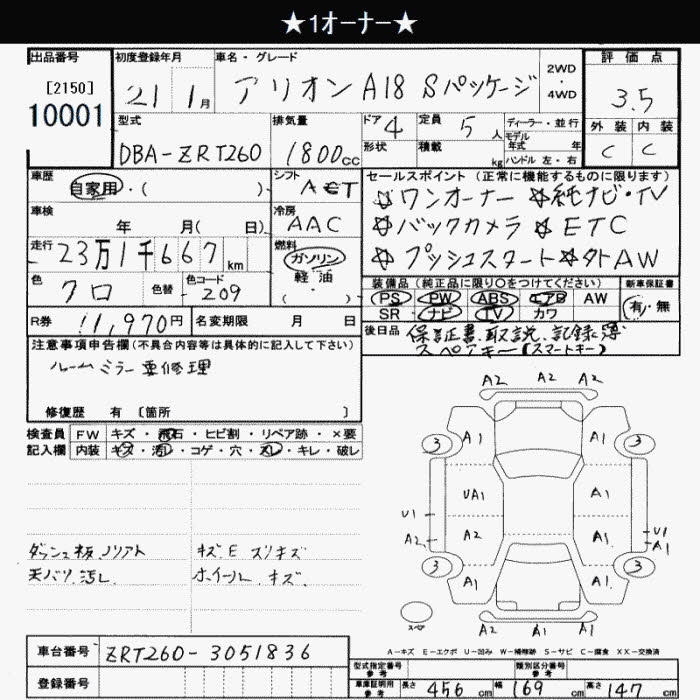 ★1オーナー★
出品番号 初度登録年月 車名・グレード 評価点
[2150]
10001
21 1月 アリオン A18 Sパッケージ 2WD・4WD 3.5
型式 排気量 ドア 4 定員 5人 ディーラー・並行 外装 内装
DBA-ZRT260 1800cc 形状 積載 kg モデル年式 年 ハンドル 左・右 C C
車歴 シフト セールスポイント(正常に機能するものに限ります)
自家用・( )・ AT ☆ワンオーナー ☆純ナビ・TV
車検 年 月( 日) 冷房 AAC ☆バックカメラ ☆ETC
走行 23万1千667km 燃料 ガソリン 軽油 ( ) ☆プッシュスタート ☆外AW
色 クロ 色替 色コード 209 装備品(純正品に限り○をつけてください) 新車保証書
PS PW ABS エアB AW 有・無
SR ナビ TV カワ
R券 11,970円 名変期限 月 日 後日品 保証書、取説、記録簿
スペアキー(スマートキー)
注意事項申告欄(不具合内容等は具体的に記入して下さい)
ルームミラー要修理
修復歴 有 [箇所 ]
検査員 FW キズ・飛石・ヒビ割・リペア跡・×要
記入欄 内装 キズ・汚レ・コゲ・穴・スレ・キレ・破レ
A2 A2 A2
3 A1 A1 3
UA1 A1
U1 A2 A2 A1 U1 A1
3 A1 A1 3
A2 A2 A1
スペア
ダッシュ板、ノリアト キズ、E スリキズ
天バリ、汚し ホイール キズ
A-キズ E-エクボ U-凹み W-補修跡 S-サビ C-腐食 XX-交換済
車台番号 ZRT260-3051836
登録番号
型式指定番号 参考 類別区分番号 参考
車庫証明用 参考 長さ 456cm 幅 169cm 高さ 147cm